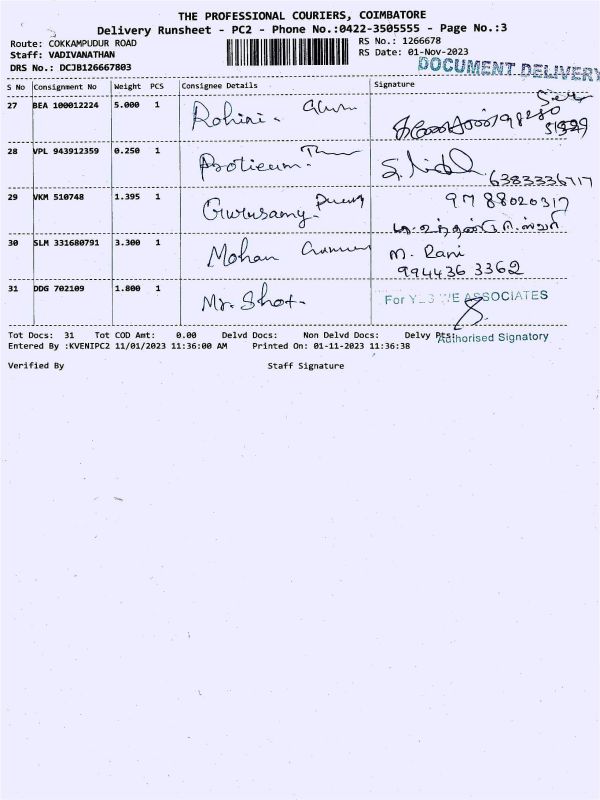 THE PROFESSIONAL COURIERS, COIMBATORE
Delivery Runsheet - PC2 - Phone No.:0422-3505555 - Page No.:3
Route: COKKAMPUDUR ROAD
RS No.: 1266678
Staff: VADIVANATHAN
RS Date: 01-Nov-2023
DRS No.: DCJB126667803
DOCUMENT DELIVERY
S No Consignment No Weight PCS Consignee Details Signature
27 BEA 100012224 5.000 1 Rohini.
28 VPL 943912359 0.250 1
6383336717
29 VKM 510748 1.395 1 Gurusamy. 9788020317
30 SLM 331680791 3.300 1 Mohan M. Rani
994436 3362
31 DDG 702109 1.800 1 Mr. Shot. For ASSOCIATES
Authorised Signatory
Tot Docs: 31 Tot COD Amt: 0.00 Delvd Docs: Non Delvd Docs: Delvy
Entered By :KVENIPC2 11/01/2023 11:36:00 AM Printed On: 01-11-2023 11:36:38
Verified By Staff Signature